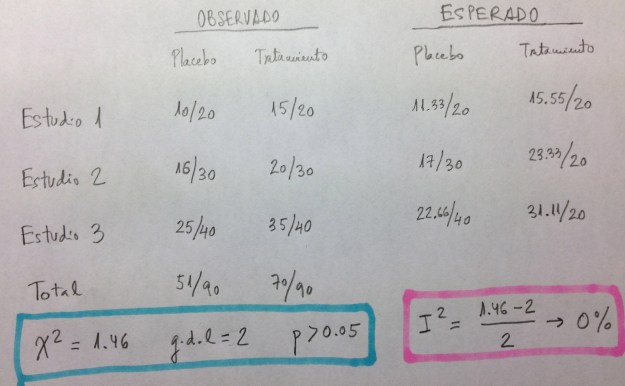 OBSERVADO ESPERADO
Placebo Tratamiento Placebo Tratamiento
Estudio 1 10/20 15/20 11.33/20 15.55/20
Estudio 2 16/30 20/30 17/30 23.33/20
Estudio 3 25/40 35/40 22.66/40 31.11/20
Total 51/90 70/90
χ² = 1.46 g.d.l = 2 p > 0.05
I² = (1.46 - 2)/2 → 0%